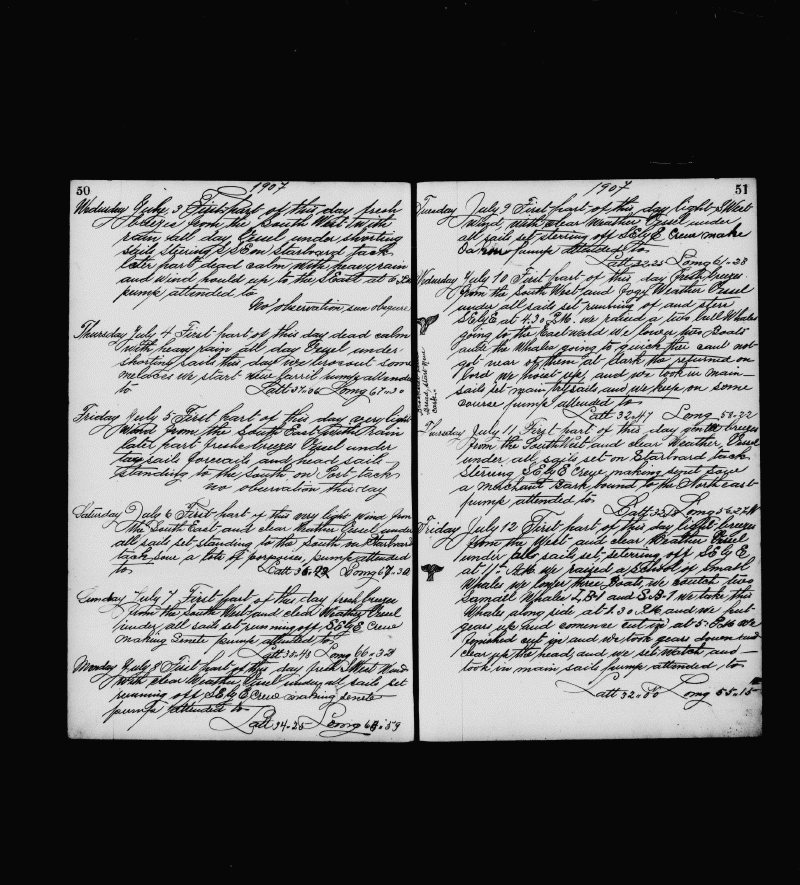 50
1907
Wednesday 3 First part of this day fresh
from the South West with
rain all day Vessel under shorting
sails Stering S.S.E on Starboard tack
later part dead calm with heavy rain
and wind to the East at 6
pump attended to
No observation sun
Thursday July 4 First part of this day dead calm
with heavy rain all day Vessel under
shorting sails this day we some
we start barril pump attended
to Latt 37.06 Long 67.30
Friday July 5 First part of this day very light
wind from the South East with rain
later part fresh breezes Vessel under
sails and head sails
standing to the south on Port tack
no observation this day
Saturday July 6 First part of this very light wind from
the South East and clear Weather Vessel under
all sail set standing to the South on Starboard
tack a lots of porpoises, pump attended
to Latt 36.22 Long 67.30
Sunday July 7 First part of this day fresh breezes
from the South West and clear Weather Vessel
under all sail set running off S.E.by E Crew
making pump attended to
Latt 35.48 Long 66.32
Monday July 8 First part of this day fresh S West Wind
with clear Weather Vessel under all sails set
running off S.E by E Crew making
pump attended to
Latt 34.25 Long 59
51
1907
Tuesday July 9 First part of this day light S West
wind with clear Weather Vessel under
all sails set stering off S.E by E Crew make
pump attended to
Latt 33.25 Long 61.28
Wednesday July 10 First part of this day fresh breezes
from the South West and Fogy Weather Vessel
under all sails set running of and stere
S.E by E at 1.30 P.M. we raised a two bull Whales
going to the Eastward We lower two Boats
the Whales going to quick we caut not
get near of them at dark the returned on
bord we hoist up, and we took in main
sails set main try sails and we keep on some
course pump attended to
Latt 32.47 Long 58.22
Thursday July 11 First part of this day breezes
from the South West and clear Weather, Vessel
under all sails set on Starboard tack
Stering S.E by E Crew making
a Merchant Bark bound to the Northeast
pump attended to
Latt Long 56.27 W
Friday July 12 First part of this day light breezes
from the West and clear Weather Vessel
under all sails set, stering off S.E by E
at 11 A.M. we raised a School of Small
Whales we lower three Boats we two
Small Whales L.B.1 and S.B.1 we take this
Whales along side at 1.30 P.M. and we put
gears up and comence cut up at 5 P.M. We
finished cut up and we took gears down and
clear up the head, and we set watch and
took in main sails pump attended to
Latt 32.50 Long 55.15